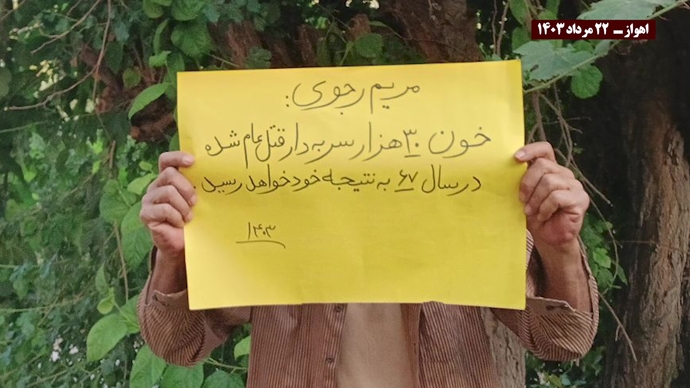 اهواز ــ ۲۲ مرداد ۱۴۰۳
مریم رجوی:
خون ۳۰ هزار سر به دار قتل عام شده
در سال ۶۷ به نتیجه خود خواهد رسید.
۱۴۰۳